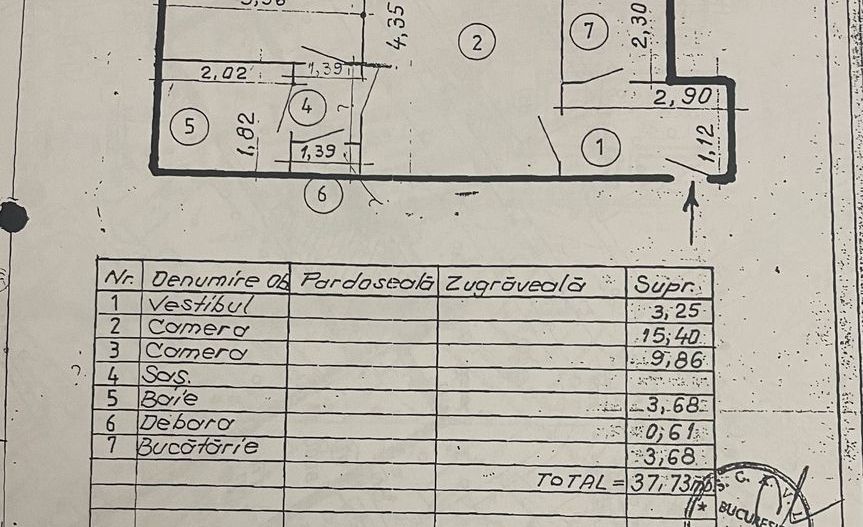 4,35
2
7
2,30
2,02
1,39
4
2,90
5
1,82
1
1,12
1,39
6
Nr. Denumire Ob Pardoseală Zugrăveală Supr.
1 Vestibul 3,25
2 Camera 15,40
3 Camera 9,86
4 Sas.
5 Baie 3,68
6 Debara 0,61
7 Bucătărie 3,68
TOTAL = 37,73mp
S. C.
BUCUREȘ